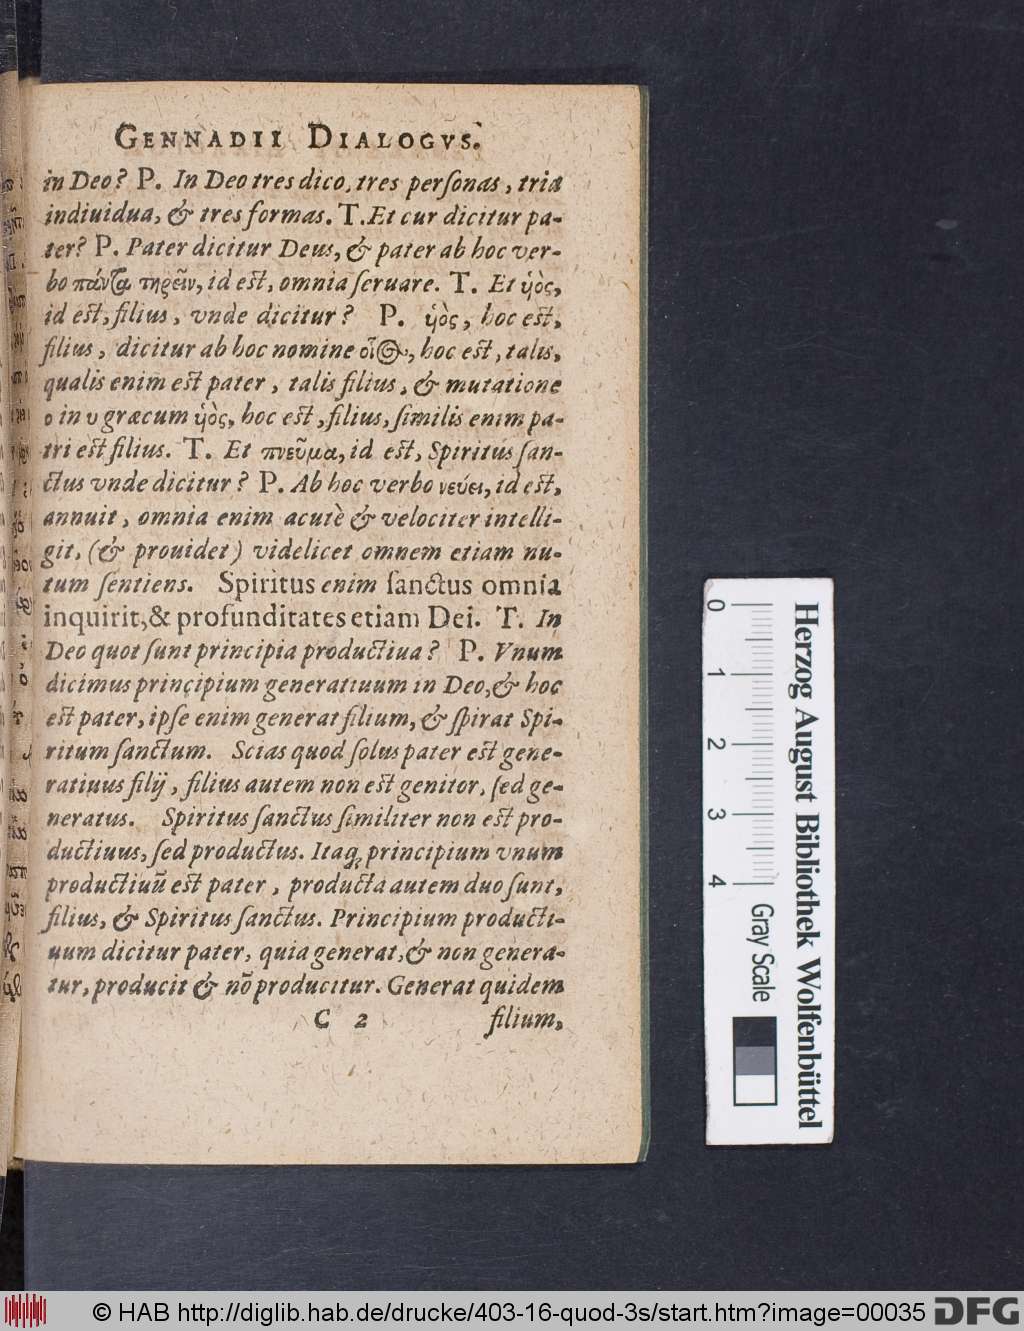 GENNADII DIALOGVS.
in Deo? P. In Deo tres dico, tres perſonas, tria
indiuidua, & tres formas. T. Et cur dicitur pa-
ter? P. Pater dicitur Deus, & pater ab hoc ver-
bo πάντα τηρεῖν, id est, omnia ſeruare. T. Et ὑὸς,
id est, filius, vnde dicitur? P. ὑὸς, hoc est,
filius, dicitur ab hoc nomine οἷος, hoc est, talis,
qualis enim est pater, talis filius, & mutatione
ο in υ græcum ὑὸς, hoc est, filius, ſimilis enim pa-
tri est filius. T. Et πνεῦμα, id est, Spiritus ſan-
ctus vnde dicitur? P. Ab hoc verbo νεύει, id est,
annuit, omnia enim acutè & velociter intelli-
git, (& prouidet) videlicet omnem etiam nu-
tum ſentiens. Spiritus enim ſanctus omnia
inquirit, & profunditates etiam Dei. T. In
Deo quot ſunt principia productiua? P. Vnum
dicimus principium generatiuum in Deo, & hoc
est pater, ipſe enim generat filium, & ſpirat Spi-
ritum ſanctum. Scias quod ſolus pater est gene-
ratiuus filij, filius autem non est genitor, ſed ge-
neratus. Spiritus ſanctus ſimiliter non est pro-
ductiuus, ſed productus. Itaq; principium vnum
productiuũ est pater, producta autem duo ſunt,
filius, & Spiritus ſanctus. Principium producti-
uum dicitur pater, quia generat, & non genera-
tur, producit & nõ producitur. Generat quidem
C 2 filium,
0 1 2 3 4
Gray Scale
Herzog August Bibliothek Wolfenbüttel
© HAB http://diglib.hab.de/drucke/403-16-quod-3s/start.htm?image=00035
DFG